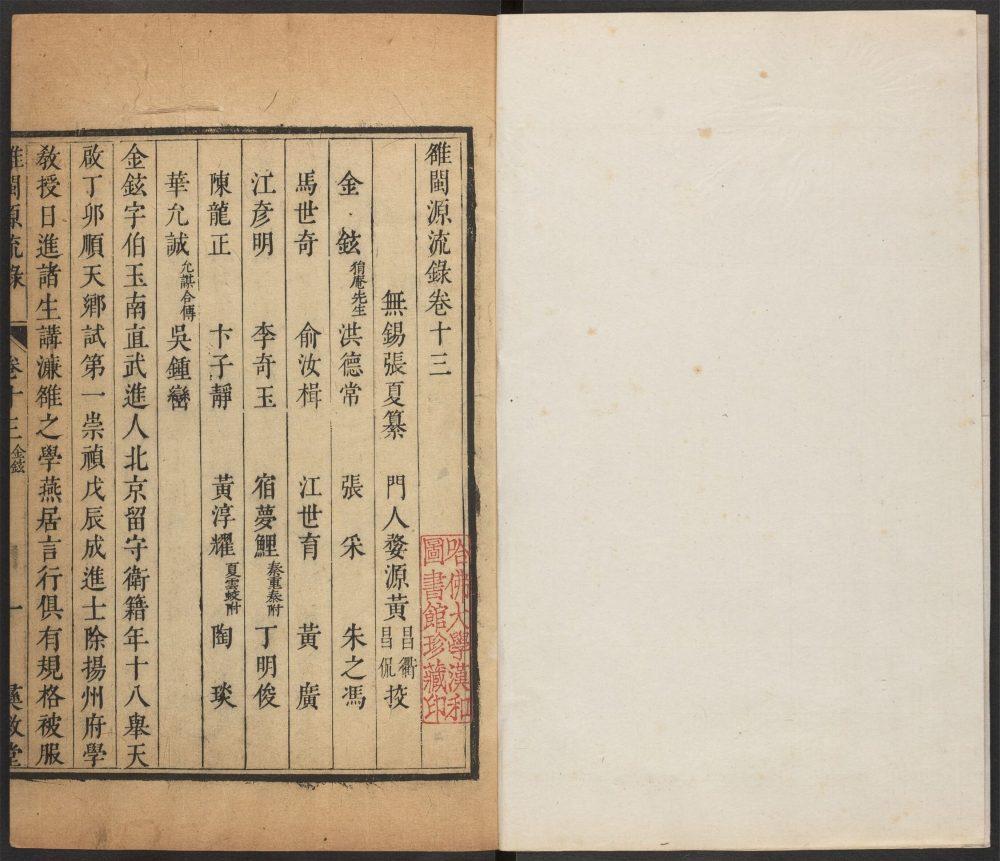 雒閩源流錄卷十三
無錫張夏纂 門人婺源黃昌衢昌侃挍
金鉉猾菴先生 洪德常 張采 朱之馮
馬世奇 俞汝楫 江世育 黃廣
江彦明 李奇玉 宿夢鯉秦重泰附 丁明俊
陳龍正 卞子靜 黃淳耀夏雲蛟附 陶琰
華允誠允謀合傳 吳鍾巒
金鉉字伯玉南直武進人北京留守衛籍年十八舉天
啟丁卯順天鄉試第一崇禎戊辰成進士除揚州府學
教授日進諸生講濂雒之學燕居言行俱有規格被服
雒閩源流錄 卷十三 金鉉 一 彝敘堂
哈佛大學漢和
圖書館珍藏印